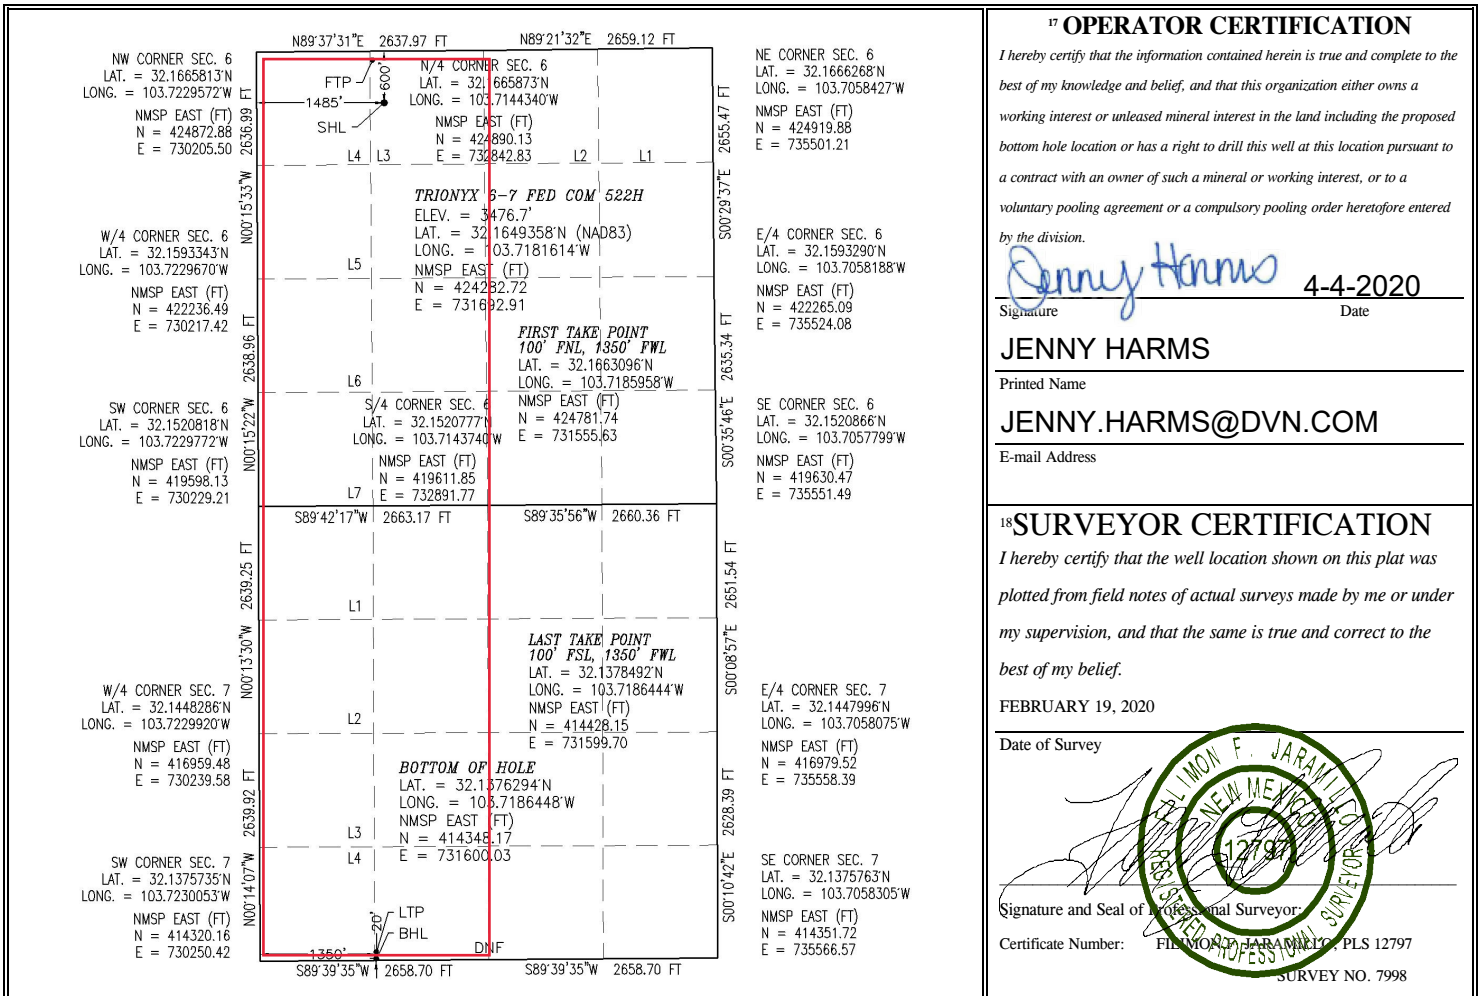 N89°37'31"E 2637.97 FT
N89°21'32"E 2659.12 FT
NW CORNER SEC. 6
LAT. = 32.1665813°N
LONG. = 103.7229572°W
NMSP EAST (FT)
N = 424872.88
E = 730205.50
FTP
600'
1485'
SHL
N/4 CORNER SEC. 6
LAT. = 32.1665873°N
LONG. = 103.7144340°W
NMSP EAST (FT)
N = 424890.13
E = 732842.83
NE CORNER SEC. 6
LAT. = 32.1666268°N
LONG. = 103.7058427°W
NMSP EAST (FT)
N = 424919.88
E = 735501.21
N00°15'33"W 2636.99 FT
S00°29'37"E 2655.47 FT
L4 L3 L2 L1
TRIONYX 6-7 FED COM 522H
ELEV. = 3476.7'
LAT. = 32.1649358°N (NAD83)
LONG. = 103.7181614°W
NMSP EAST (FT)
N = 424282.72
E = 731692.91
W/4 CORNER SEC. 6
LAT. = 32.1593343°N
LONG. = 103.7229670°W
NMSP EAST (FT)
N = 422236.49
E = 730217.42
L5
E/4 CORNER SEC. 6
LAT. = 32.1593290°N
LONG. = 103.7058188°W
NMSP EAST (FT)
N = 422265.09
E = 735524.08
FIRST TAKE POINT
100' FNL, 1350' FWL
LAT. = 32.1663096°N
LONG. = 103.7185958°W
NMSP EAST (FT)
N = 424781.74
E = 731555.63
N00°15'22"W 2638.96 FT
S00°35'46"E 2635.34 FT
L6
SW CORNER SEC. 6
LAT. = 32.1520818°N
LONG. = 103.7229772°W
NMSP EAST (FT)
N = 419598.13
E = 730229.21
S/4 CORNER SEC. 6
LAT. = 32.1520777°N
LONG. = 103.7143740°W
NMSP EAST (FT)
N = 419611.85
E = 732891.77
SE CORNER SEC. 6
LAT. = 32.1520866°N
LONG. = 103.7057799°W
NMSP EAST (FT)
N = 419630.47
E = 735551.49
L7
S89°42'17"W 2663.17 FT
S89°35'56"W 2660.36 FT
N00°13'30"W 2639.25 FT
S00°08'57"E 2651.54 FT
L1
LAST TAKE POINT
100' FSL, 1350' FWL
LAT. = 32.1378492°N
LONG. = 103.7186444°W
NMSP EAST (FT)
N = 414428.15
E = 731599.70
W/4 CORNER SEC. 7
LAT. = 32.1448286°N
LONG. = 103.7229920°W
NMSP EAST (FT)
N = 416959.48
E = 730239.58
L2
E/4 CORNER SEC. 7
LAT. = 32.1447996°N
LONG. = 103.7058075°W
NMSP EAST (FT)
N = 416979.52
E = 735558.39
BOTTOM OF HOLE
LAT. = 32.1376294°N
LONG. = 103.7186448°W
NMSP EAST (FT)
N = 414348.17
E = 731600.03
N00°14'07"W 2639.92 FT
S00°10'42"E 2628.39 FT
L3
L4
SW CORNER SEC. 7
LAT. = 32.1375735°N
LONG. = 103.7230053°W
NMSP EAST (FT)
N = 414320.16
E = 730250.42
SE CORNER SEC. 7
LAT. = 32.1375763°N
LONG. = 103.7058305°W
NMSP EAST (FT)
N = 414351.72
E = 735566.57
LTP
20'
BHL
1350'
DNF
S89°39'35"W 2658.70 FT
S89°39'35"W 2658.70 FT
17 OPERATOR CERTIFICATION
I hereby certify that the information contained herein is true and complete to the
best of my knowledge and belief, and that this organization either owns a
working interest or unleased mineral interest in the land including the proposed
bottom hole location or has a right to drill this well at this location pursuant to
a contract with an owner of such a mineral or working interest, or to a
voluntary pooling agreement or a compulsory pooling order heretofore entered
by the division.
Jenny Harms 4-4-2020
Signature Date
JENNY HARMS
Printed Name
JENNY.HARMS@DVN.COM
E-mail Address
18 SURVEYOR CERTIFICATION
I hereby certify that the well location shown on this plat was
plotted from field notes of actual surveys made by me or under
my supervision, and that the same is true and correct to the
best of my belief.
FEBRUARY 19, 2020
Date of Survey
FILIMON F. JARAMILLO
NEW MEXICO
12797
REGISTERED PROFESSIONAL SURVEYOR
Signature and Seal of Professional Surveyor:
Certificate Number: FILIMON F. JARAMILLO, PLS 12797
SURVEY NO. 7998